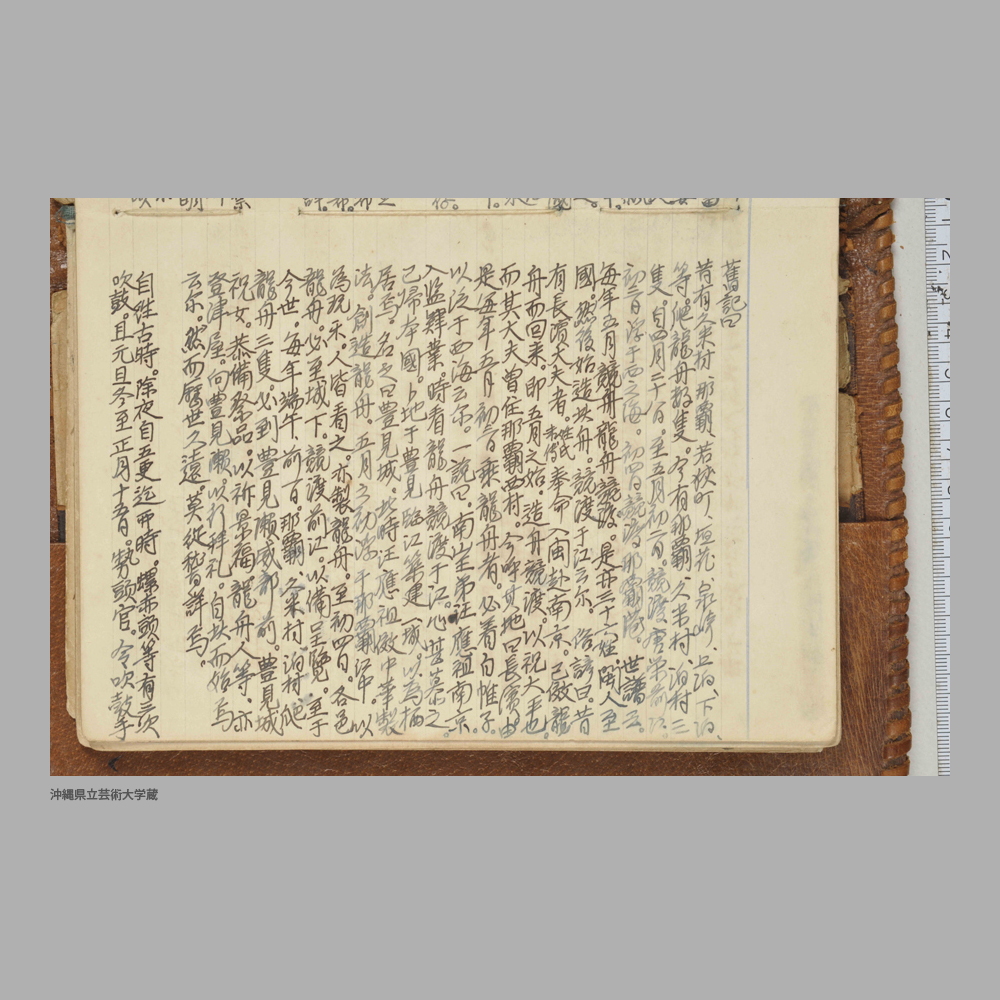 舊記曰
昔有久米村、那覇、若狭町、垣花、泉崎、上泊、下泊、
等爬龍舟数隻。今有那覇、久米村、泊村三
隻。自四月二十八日。至五月初二日。競渡唐栄前江。
初三日浮于西之海。初四日競渡那覇港。世譜云。
毎年五月競舟龍舟競渡。是廾三十六姓閩人至
國。然後始造此舟。競渡于江云尓。俗諺曰。昔
有長濱大夫者。姓氏未傳奉命入閩赴南京。已倣龍
舟而回来。即五月之始。造舟競渡。以祝大平也。
而其大夫曽住那覇西村。今呼其地曰長濱。由
是毎年五月初三日乗龍舟者。必着白帷子。
以泛于西海云尓。一説曰。南山王弟汪應祖南京
入監肄業。時看龍舟競渡于江。心甚慕之。
已帰本國。卜地于豊見臨江築建一城。以為栖
居焉。名之曰豊見城。此時汪應祖倣中華製
法。創造龍舟。五月之初浮于那覇江中。以
為玩采。人皆看之亦製龍舟。至初四日。各邑
龍舟。必至城下。競渡前江。以備呈覧。至于
今世。毎年端午。前一日。那覇久米村泊村爬
龍舟三隻。必到豊見瀬威部前。豊見城
祝女。恭備祭品。以祈景福。龍舟人等。亦
登津屋。向豊見瀬。以行拝礼。自此而始焉
云尓。然而歴世久遠。莫従稽詳焉。
自往古時。除夜自五更迄甲時。螺赤頭等有三次
吹鼓且元旦冬至正月十五日。勢頭官。令吹鼓手